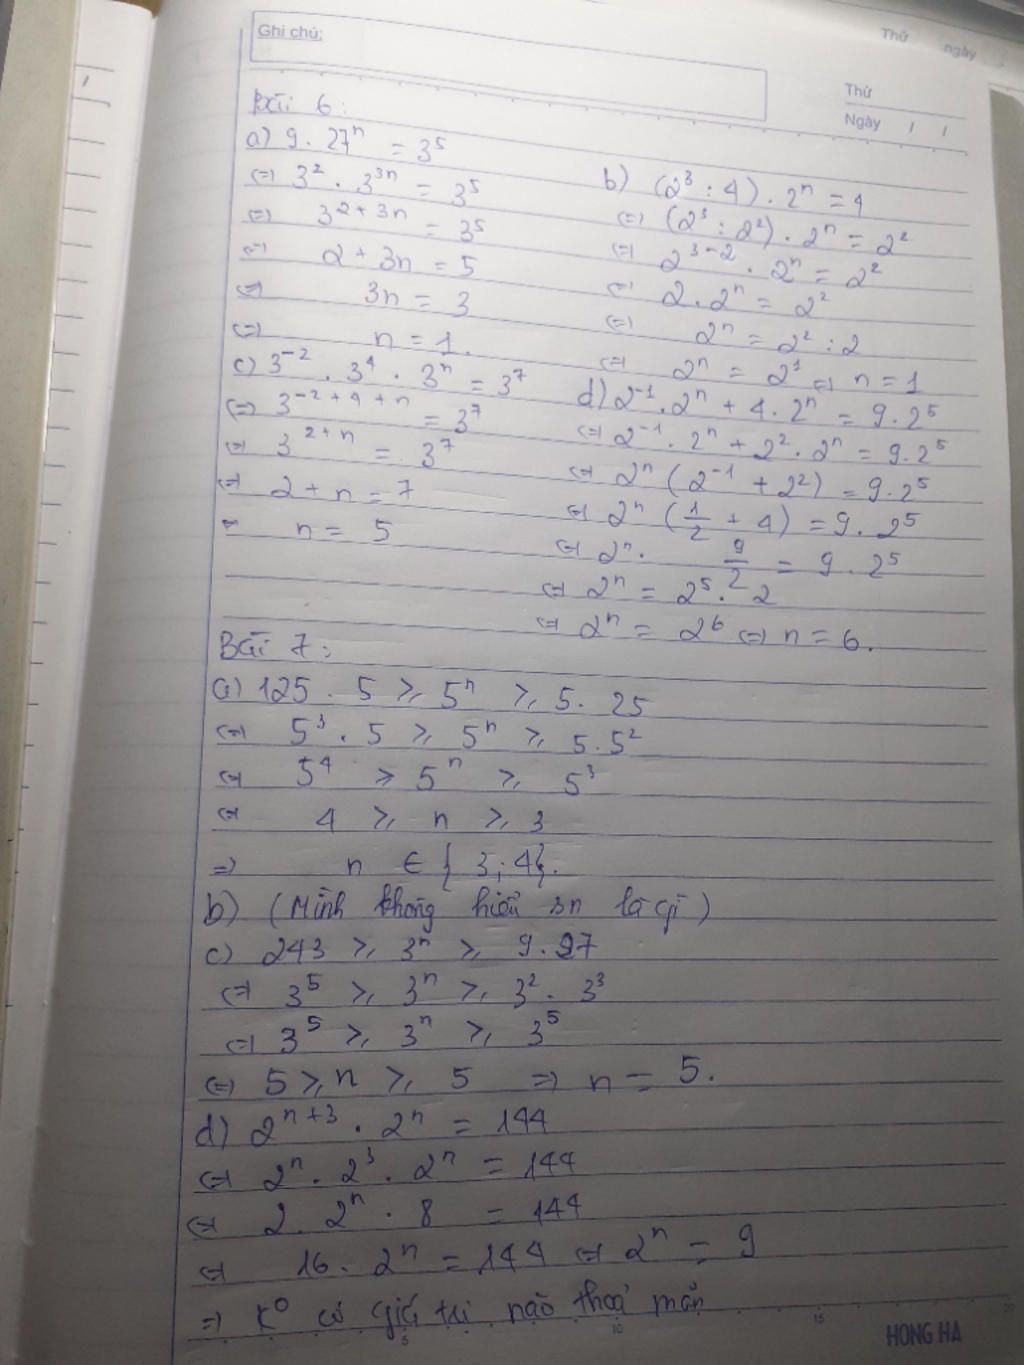 Ghi chú:
Thứ ngày
Thứ
Ngày / /
Bài 6:
a) 9 . 27ⁿ = 3⁵
⇔ 3² . 3³ⁿ = 3⁵
⇔ 3²⁺³ⁿ = 3⁵
⇔ 2 + 3n = 5
⇔ 3n = 3
⇔ n = 1.
b) (2³ : 4) . 2ⁿ = 4
⇔ (2³ : 2²) . 2ⁿ = 2²
⇔ 2³⁻² . 2ⁿ = 2²
⇔ 2 . 2ⁿ = 2²
⇔ 2ⁿ = 2² : 2
⇔ 2ⁿ = 2¹ ⇔ n = 1
c) 3⁻² . 3⁴ . 3ⁿ = 3⁷
⇔ 3⁻²⁺⁴⁺ⁿ = 3⁷
⇔ 3²⁺ⁿ = 3⁷
⇔ 2 + n = 7
⇔ n = 5
d) 2⁻¹ . 2ⁿ + 4 . 2ⁿ = 9 . 2⁵
⇔ 2⁻¹ . 2ⁿ + 2² . 2ⁿ = 9 . 2⁵
⇔ 2ⁿ (2⁻¹ + 2²) = 9 . 2⁵
⇔ 2ⁿ (1/2 + 4) = 9 . 2⁵
⇔ 2ⁿ . 9/2 = 9 . 2⁵
⇔ 2ⁿ = 2⁵ . 2
⇔ 2ⁿ = 2⁶ ⇔ n = 6.
Bài 7:
a) 125 . 5 ⩾ 5ⁿ ⩾ 5 . 25
⇔ 5³ . 5 ⩾ 5ⁿ ⩾ 5 . 5²
⇔ 5⁴ ⩾ 5ⁿ ⩾ 5³
⇔ 4 ⩾ n ⩾ 3
⇒ n ∈ { 3 ; 4}.
b) (Mình không hiểu 3n là gì)
c) 243 ⩾ 3ⁿ ⩾ 9 . 27
⇔ 3⁵ ⩾ 3ⁿ ⩾ 3² . 3³
⇔ 3⁵ ⩾ 3ⁿ ⩾ 3⁵
⇔ 5 ⩾ n ⩾ 5 ⇒ n = 5.
d) 2ⁿ⁺³ . 2ⁿ = 144
⇔ 2ⁿ . 2³ . 2ⁿ = 144
⇔ 2 . 2ⁿ . 8 = 144
⇔ 16 . 2ⁿ = 144 ⇔ 2ⁿ = 9
⇒ K⁰ có giá trị nào thoả mãn
5 10 15 20
HONG HA